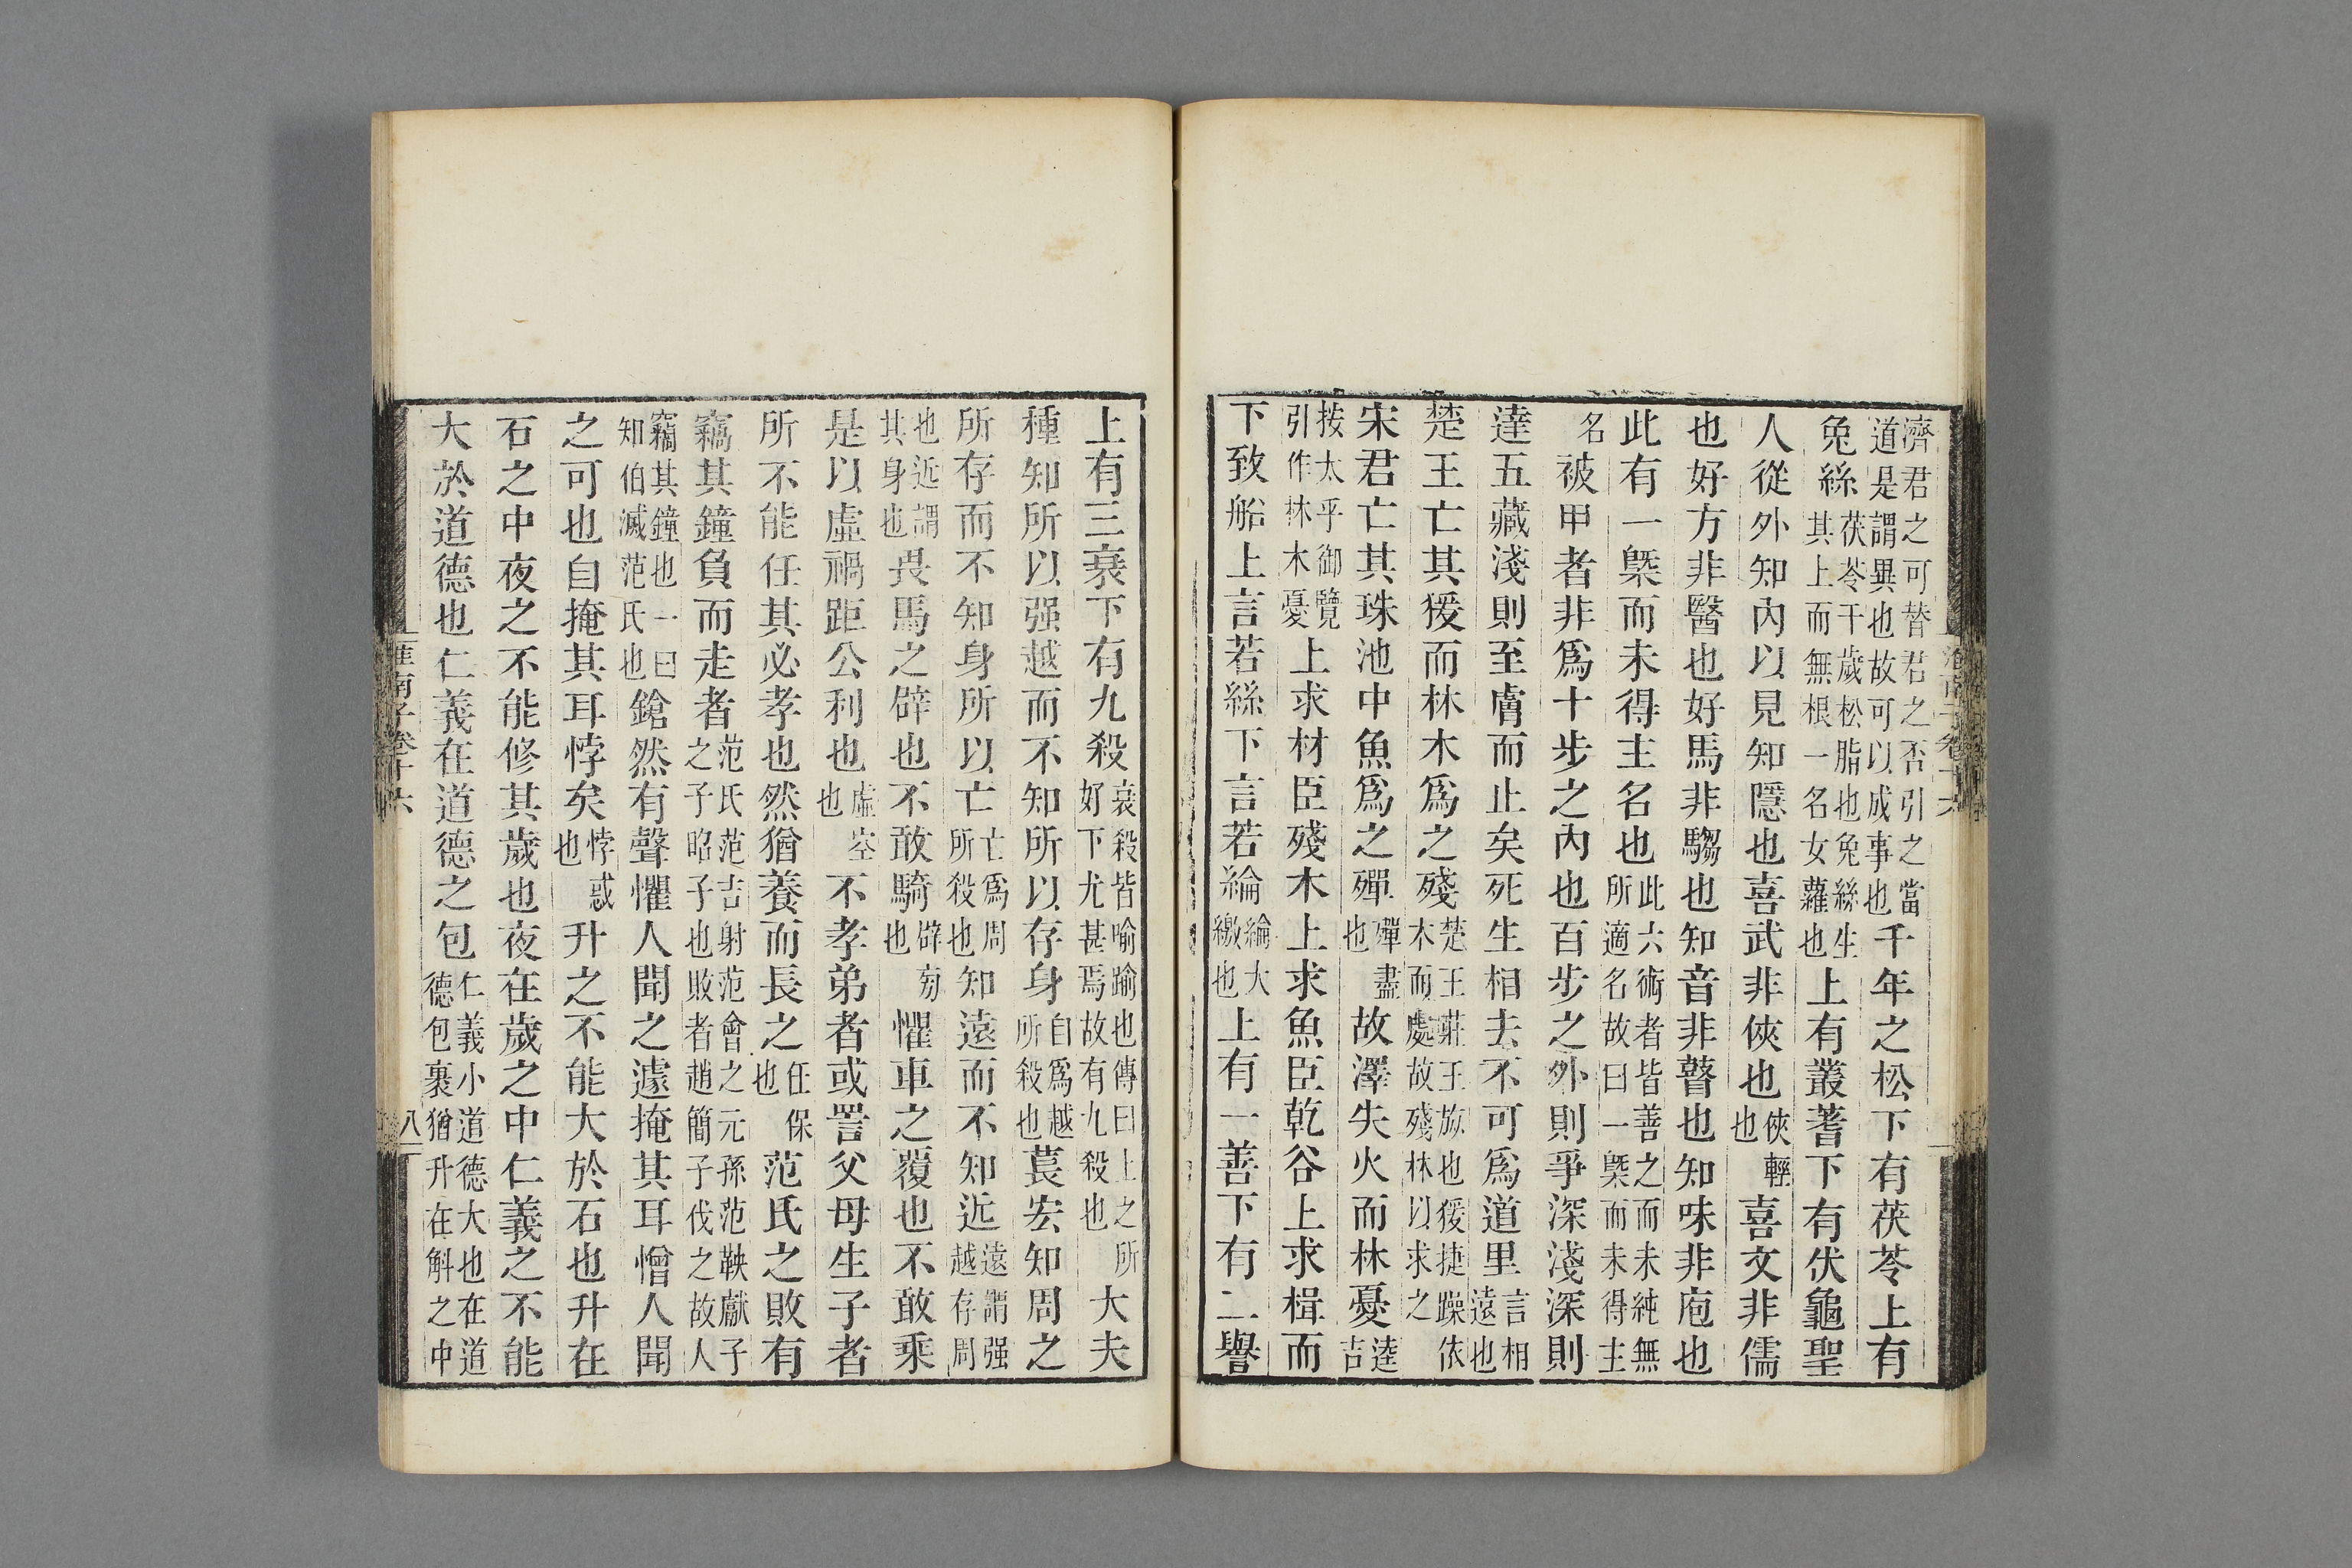 濟君之可替君之否引之當道是謂異也故可以成事也千年之松下有茯苓上有
兔絲茯苓千歲松脂也兔絲生其上而無根一名女蘿也上有叢蓍下有伏龜聖
人從外知內以見知隱也喜武非俠也俠輕也喜文非儒
也好方非醫也好馬非騶也知音非瞽也知味非庖也
此有一㮣而未得主名也此六術者皆善之而未純無所適名故曰一㮣而未得主
名被甲者非爲十步之內也百步之外則爭深淺深則
達五藏淺則至膚而止矣死生相去不可爲道里言相遠也
楚王亡其猨而林木爲之殘楚王莊王旅也猨捷躁依木而處故殘林以求之
宋君亡其珠池中魚爲之殫殫盡也故澤失火而林憂逵吉
按太平御覽引作林木憂上求材臣殘木上求魚臣乾谷上求楫而
下致船上言若絲下言若綸綸大繳也上有一善下有二譽
上有三衰下有九殺衰殺皆喻踰也傳曰上之所好下尤甚焉故有九殺也大夫
種知所以强越而不知所以存身自爲越所殺也萇宏知周之
所存而不知身所以亡亡爲周所殺也知遠而不知近遠謂强越存周
也近謂其身也畏馬之辟也不敢騎辟旁也懼車之覆也不敢乘
是以虛禍距公利也虛空也不孝弟者或詈父母生子者
所不能任其必孝也然猶養而長之任保也范氏之敗有
竊其鐘負而走者范氏范吉射范會之元孫范鞅獻子之子昭子也敗者趙簡子伐之故人
竊其鐘也一曰知伯滅范氏也鎗然有聲懼人聞之遽掩其耳憎人聞
之可也自掩其耳悖矣悖惑也升之不能大於石也升在
石之中夜之不能修其歲也夜在歲之中仁義之不能
大於道德也仁義在道德之包仁義小道德大也在道德包裹猶升在斛之中
淮南子卷十六
八